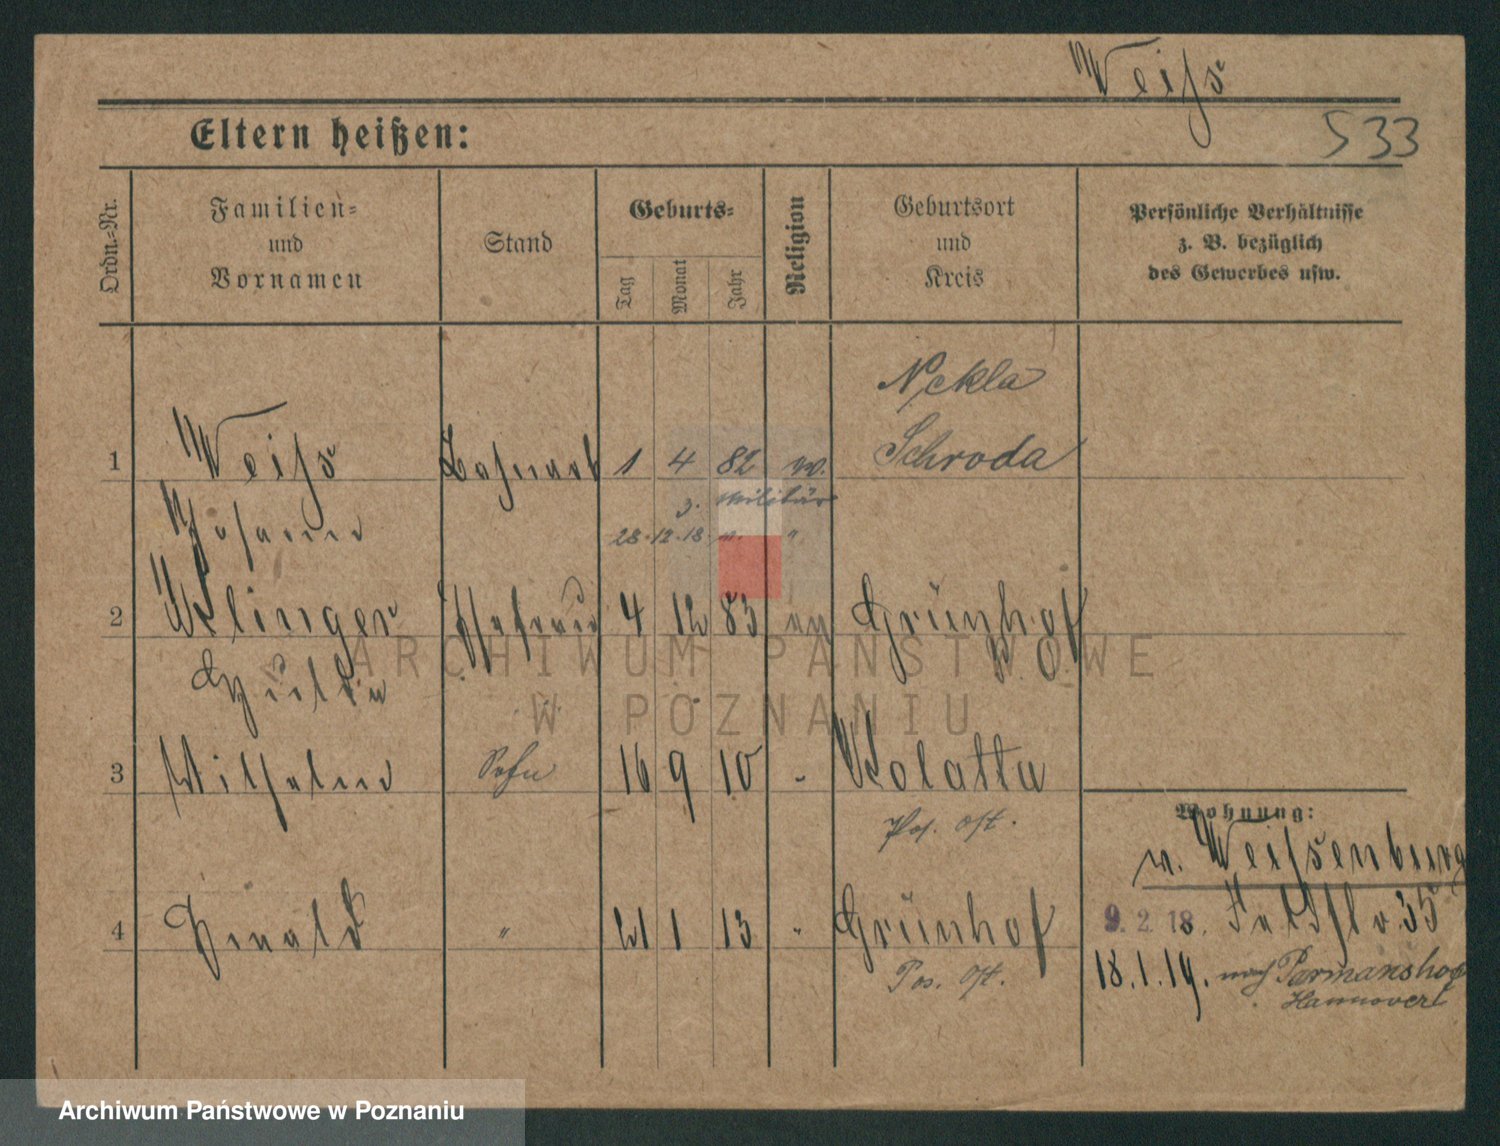 Weiſs
S 33
Eltern heißen:
Ordn.-Nr.
Familien-
und
Vornamen
Stand
Geburts-
Tag
Monat
Jahr
Religion
Geburtsort
und
Kreis
Persönliche Verhältnisse
z. B. bezüglich
des Gewerbes usw.
Nekla
1 Weiſs 1 4 82 Schroda
z. Militär
Johann 28.12.18 "
2 Klinger Ehefrau 4 12 83 ev Grünhof
P. O
ARCHIWUM PAŃSTWOWE
W POZNANIU
3 Wilhelm Sohn 16 9 10 " Kolatta
Pos. Ost.
Wohnung:
v. Weiſsenburg
4 " 21 1 13 " Grünhof
9. 2. 18. 35
Pos. Ost.
18.1.19. nach
Hannover
Archiwum Państwowe w Poznaniu